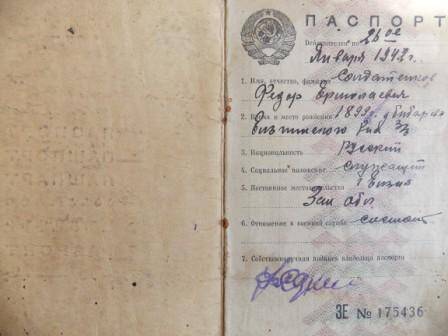 ПАСПОРТ
Действителен по 26ое
Января 1942г.
1. Имя, отчество, фамилия Солдатенков
Федор Ермолаевич
2. Время и место рождения 1899г.
района
3. Национальность Русский
4. Социальное положение служащий
5. Постоянное местожительство
Зап обл
6. Отношение к военной службе состоит
7. Собственноручная подпись владельца паспорта
ЗЕ № 175436